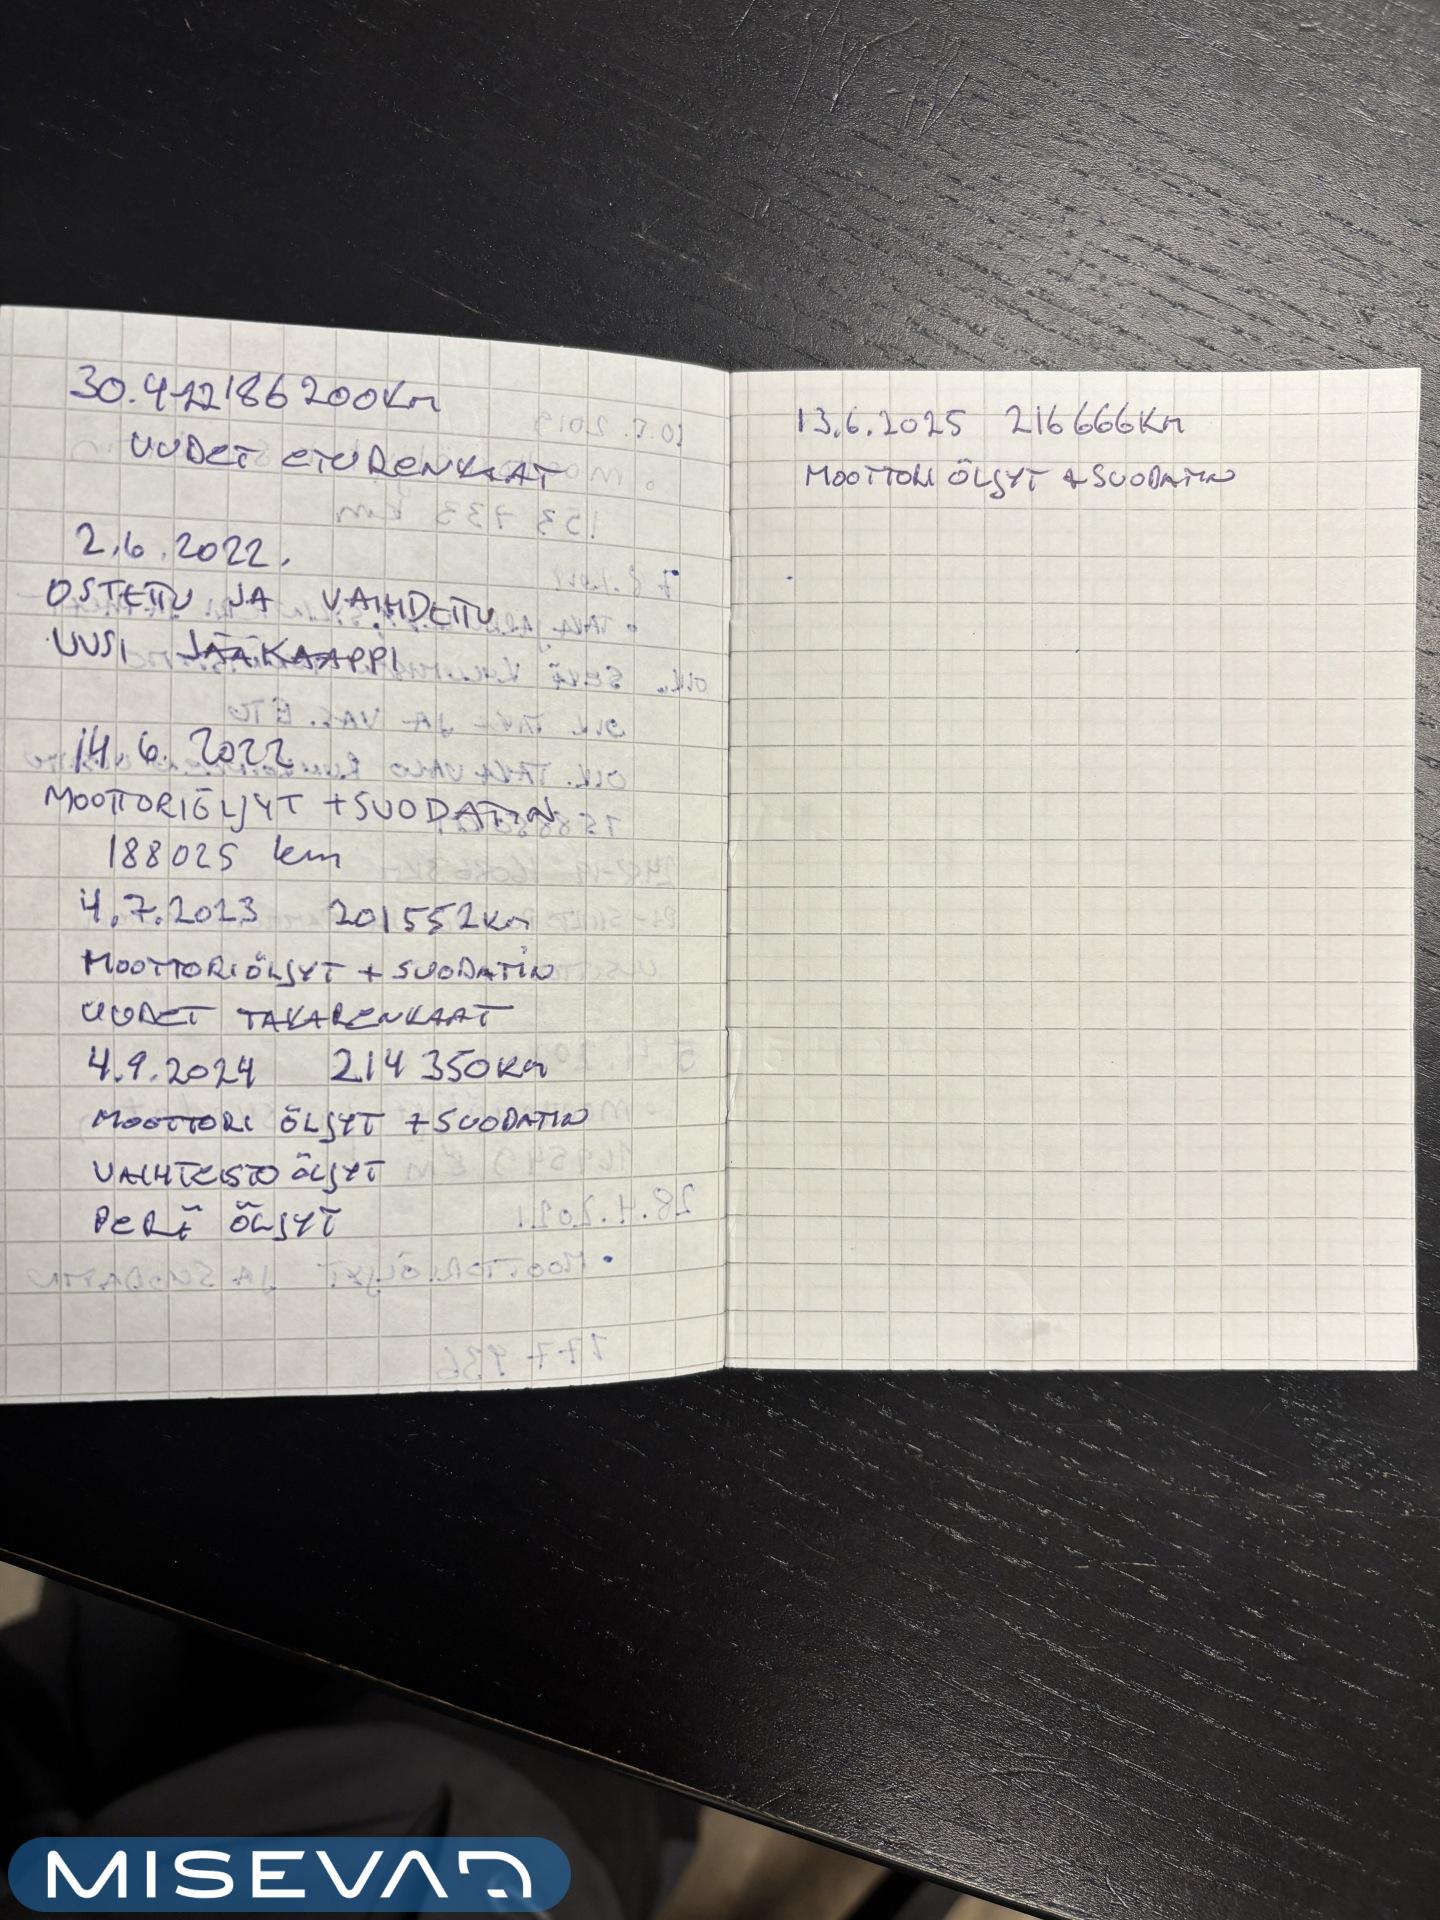 30.4-22 186 200Km
UUDET ETURENKAAT
2.6.2022.
OSTETTU JA VAIHDETTU
UUSI JÄÄKAAPPI
14.6.2022
MOOTTORIÖLJYT + SUODATIN
188025 km
4.7.2023 201552Km
MOOTTORIÖLJYT + SUODATIN
UUDET TAKARENKAAT
4.9.2024 214 350Km
MOOTTORI ÖLJYT + SUODATIN
VAIHTEISTO ÖLJYT
PERÄ ÖLJYT
13.6.2025 216666Km
MOOTTORI ÖLJYT + SUODATIN
MISEVA